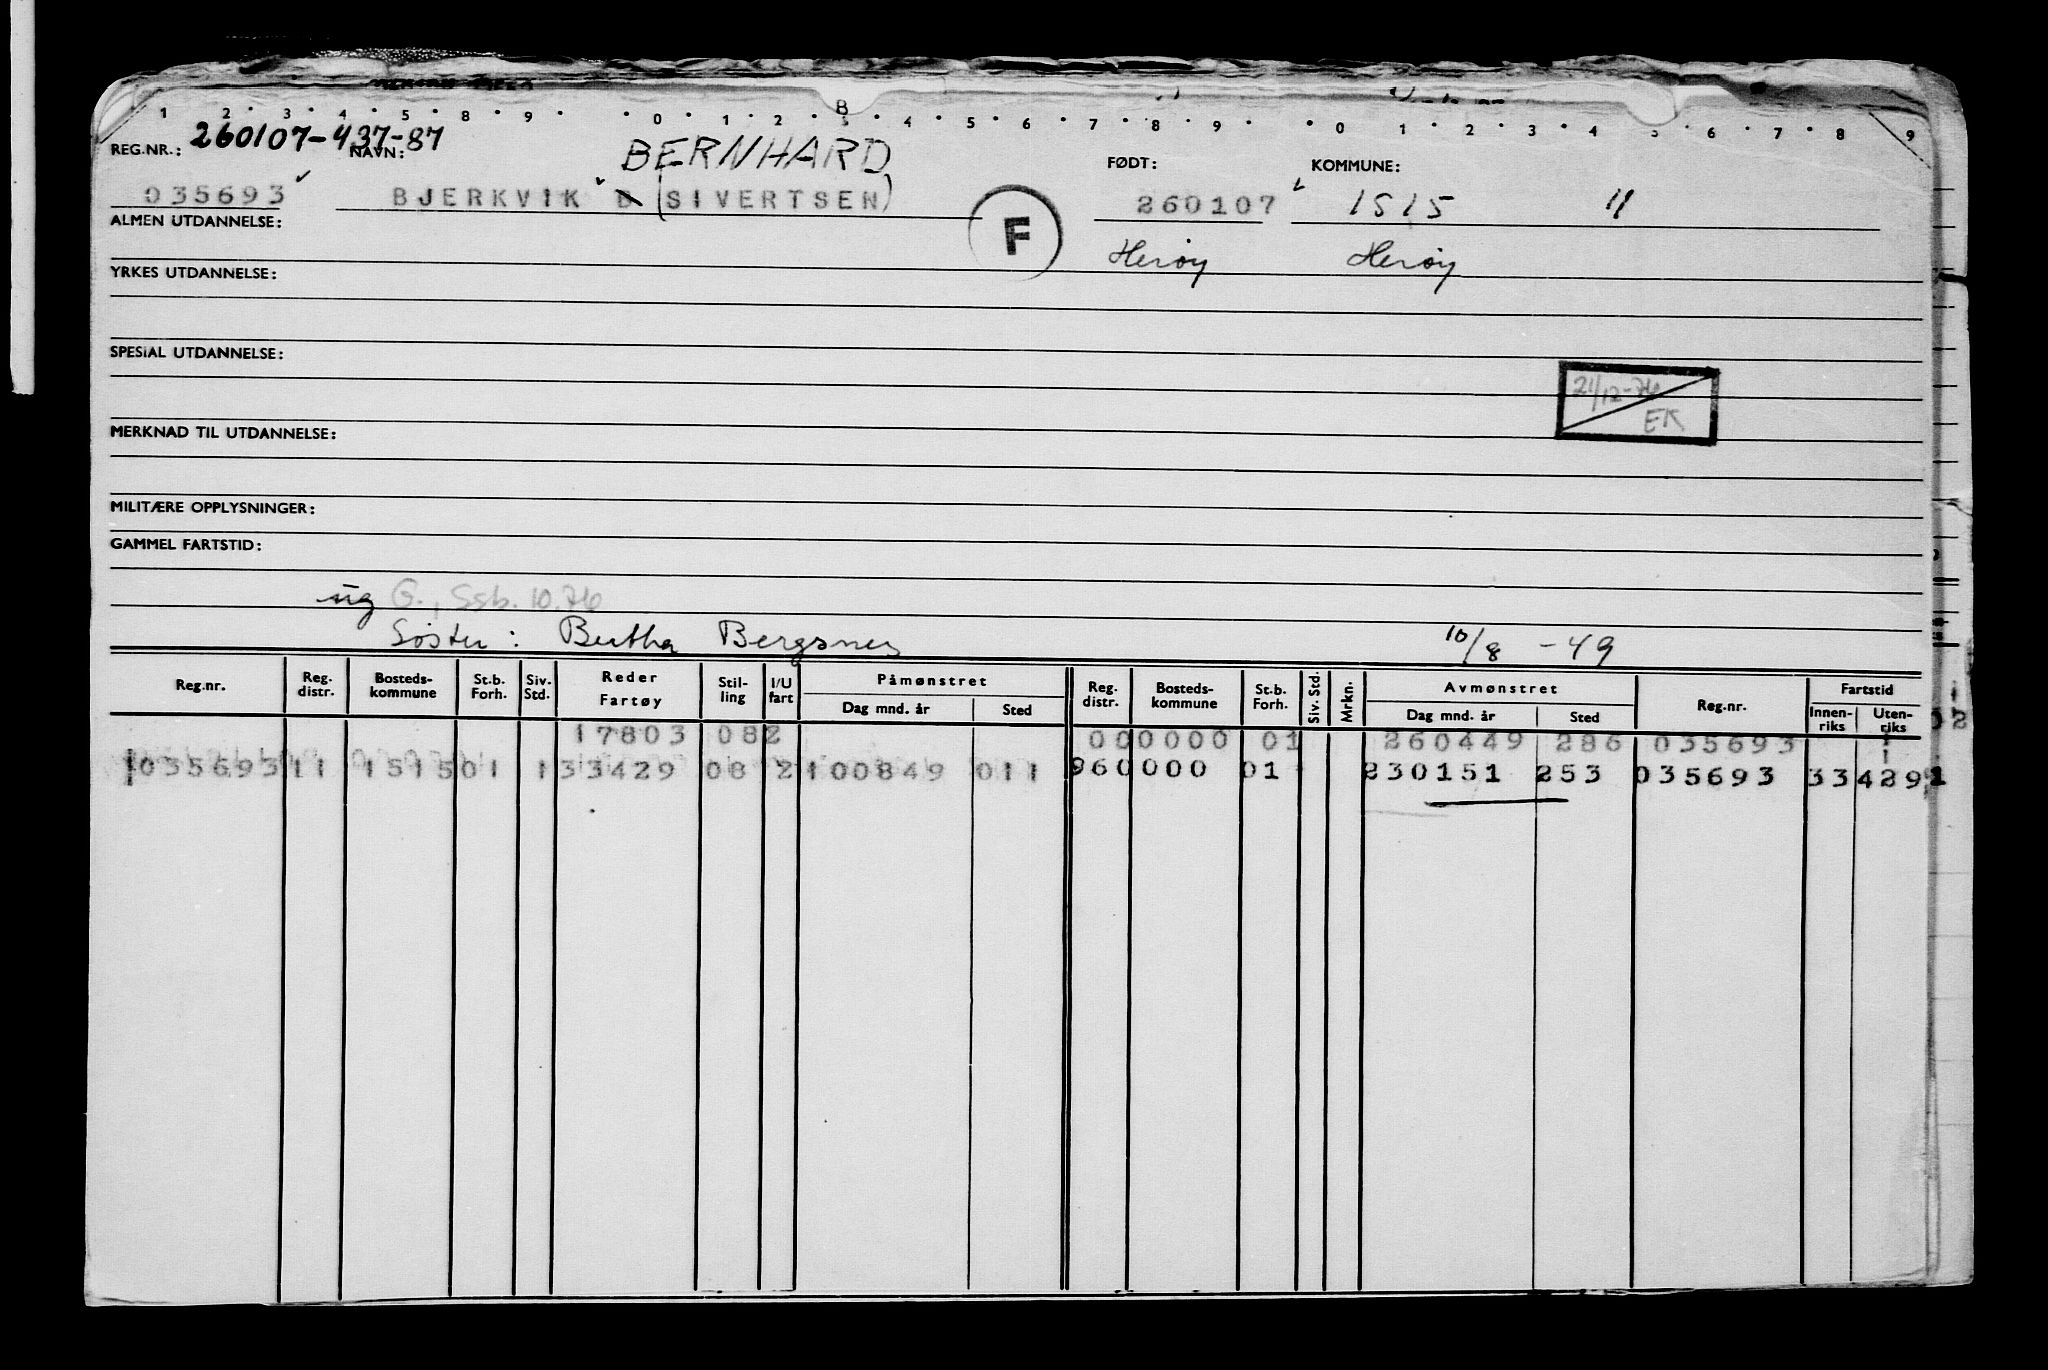 1 2 3 4 5 8 9 0 1 2 3 4 5 6 7 8 9 0 1 2 3 4 5 6 7 8 9
B
REG.NR.: 260107-437-87 NAVN: BERNHARD FØDT: KOMMUNE:
035693 BJERKVIK B (SIVERTSEN) F 260107 1515 11
ALMEN UTDANNELSE:
Herøy Herøy
YRKES UTDANNELSE:
SPESIAL UTDANNELSE:
21/12-76
EK
MERKNAD TIL UTDANNELSE:
MILITÆRE OPPLYSNINGER:
GAMMEL FARTSTID:
ug G., Ssb. 10.76
Søster: Bertha Bergsnes 10/8 -49
Reg.nr. Reg. distr. Bosteds-kommune St.b. Forh. Siv. Std. Reder Fartøy Stil-ling I/U fart Påmønstret Dag mnd. år Sted Reg. distr. Bosteds-kommune St.b. Forh. Siv. Std. Mrkn. Avmønstret Dag mnd. år Sted Reg.nr. Fartstid Innen-riks Uten-riks
17803 082 000000 01 260449 286 035693
035693 11 1515 01 1 33429 08 2 100849 011 960000 01 230151 253 035693 33 429 1